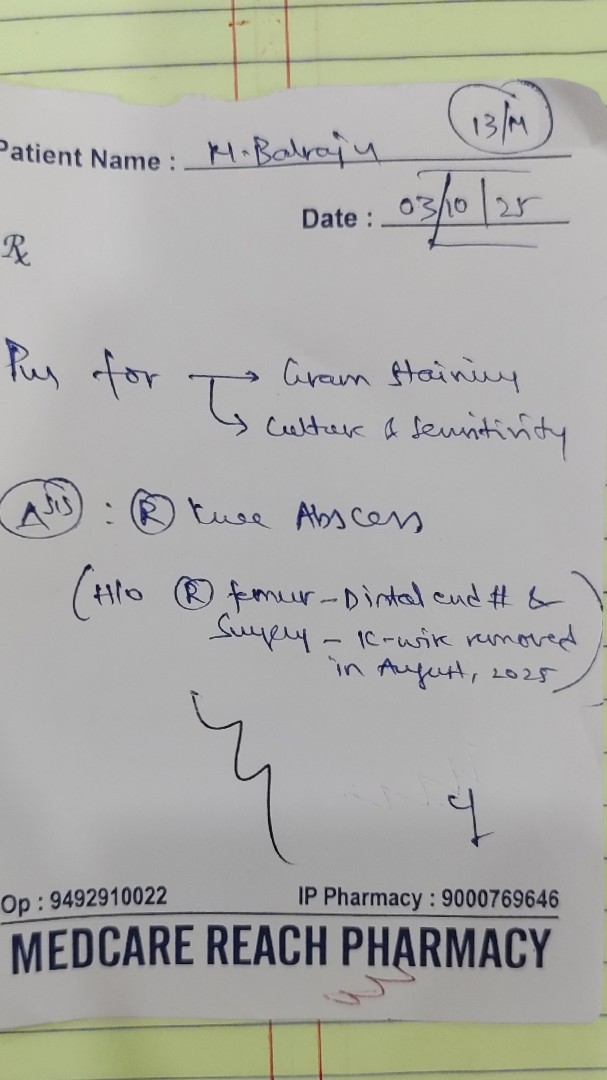 13/M
Patient Name : M. Balraju
Date : 03/10/25
Rx
Pus for → Gram staining
↳ Culture & sensitivity
: R Knee Abscess
(H/o R femur - Distal end # &
Surgery - K-wire removed
in August, 2025)
Op : 9492910022 IP Pharmacy : 9000769646
MEDCARE REACH PHARMACY